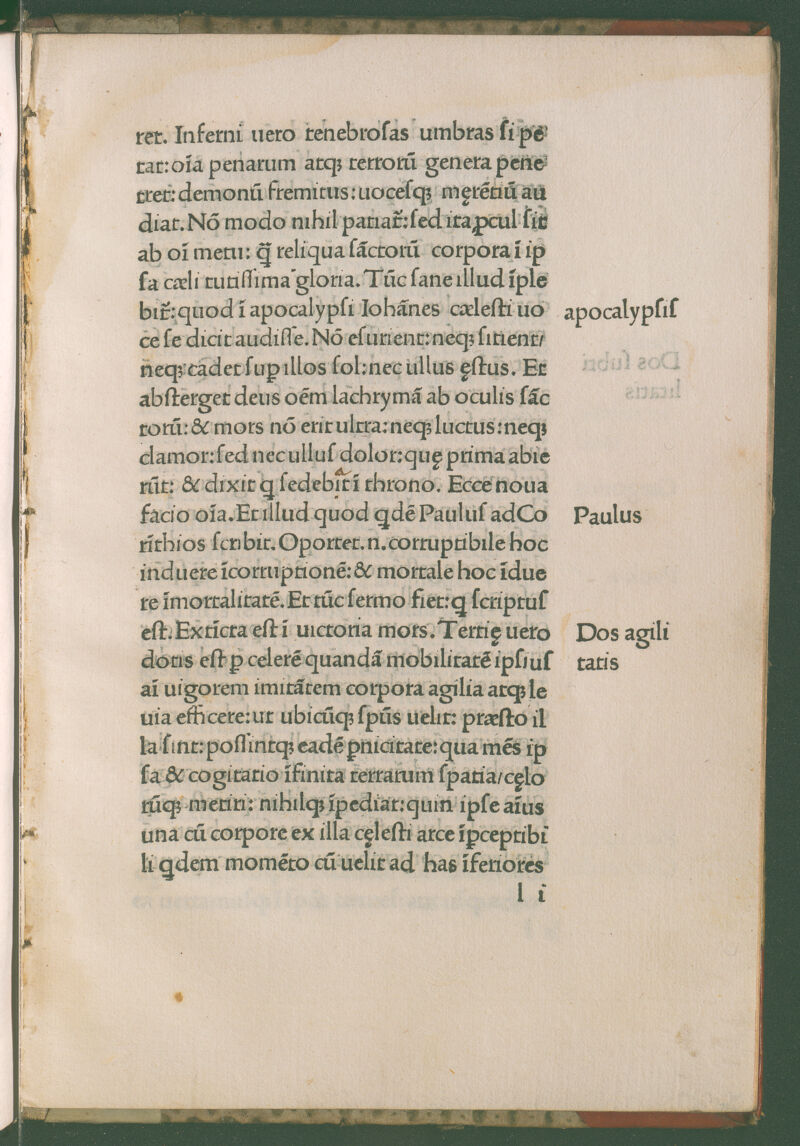 ret. Inferni uero tenebroſas umbras ſi pe
tat:oīa penarum atqꝫ terrorū genera pene
tret:demonū fremitus:uoceſqꝫ męrētiū au
diat.Nō modo nihil patiat᷑:ſed ita ꝓcul ſit
ab oī metu: q̄ reliqua ſāctorū corpora ī ip
ſa cæli tutiſſima gloria.Tūc ſane illud īple
bit᷑:quod ī apocalypſi Iohānes cæleſti uo
apocalypſiſ
ce ſe dicit audiſſe.Nō eſurient:neqꝫ ſitient/
neqꝫ cadet ſup illos ſol:nec ullus ęſtus. Et
abſterget deus oēm lachrymā ab oculis ſāc
torū:& mors nō erit ultra:neqꝫ luctus:neqꝫ
clamor:ſed nec ulluſ dolor:quę prima abie
rūt: & dixit q ſedebat ī throno. Ecce noua
facio oīa.Et illud quod qdē Pauluſ ad Co
Paulus
rīthios ſcribit.Oportet.n.corruptibile hoc
induere īcorruptionē:& mortale hoc īdue
re īmortalitatē.Et tūc ſermo fiet:q ſcriptuſ
eſt.Extīcta eſt ī uictoria mors.Tertię uero
Dos agili
dotis eſt p celerē quandā mobilitatē ipſiuſ
tatis
aī uigorem imitātem corpora agilia atqꝫ le
uia efficere:ut ubicūqꝫ ſpūs uelit: præſto il
la ſint:poſſintqꝫ eadē pnicitate:qua mēs ip
ſa & cogitatio īfinita terrarum ſpatia/cęlo
rūqꝫ metiri: nihilqꝫ īpediat:quin ipſe aīus
una cū corpore ex illa cęleſti arce īpceptibi
li qdem momēto cū uelit ad has īferiores
l i